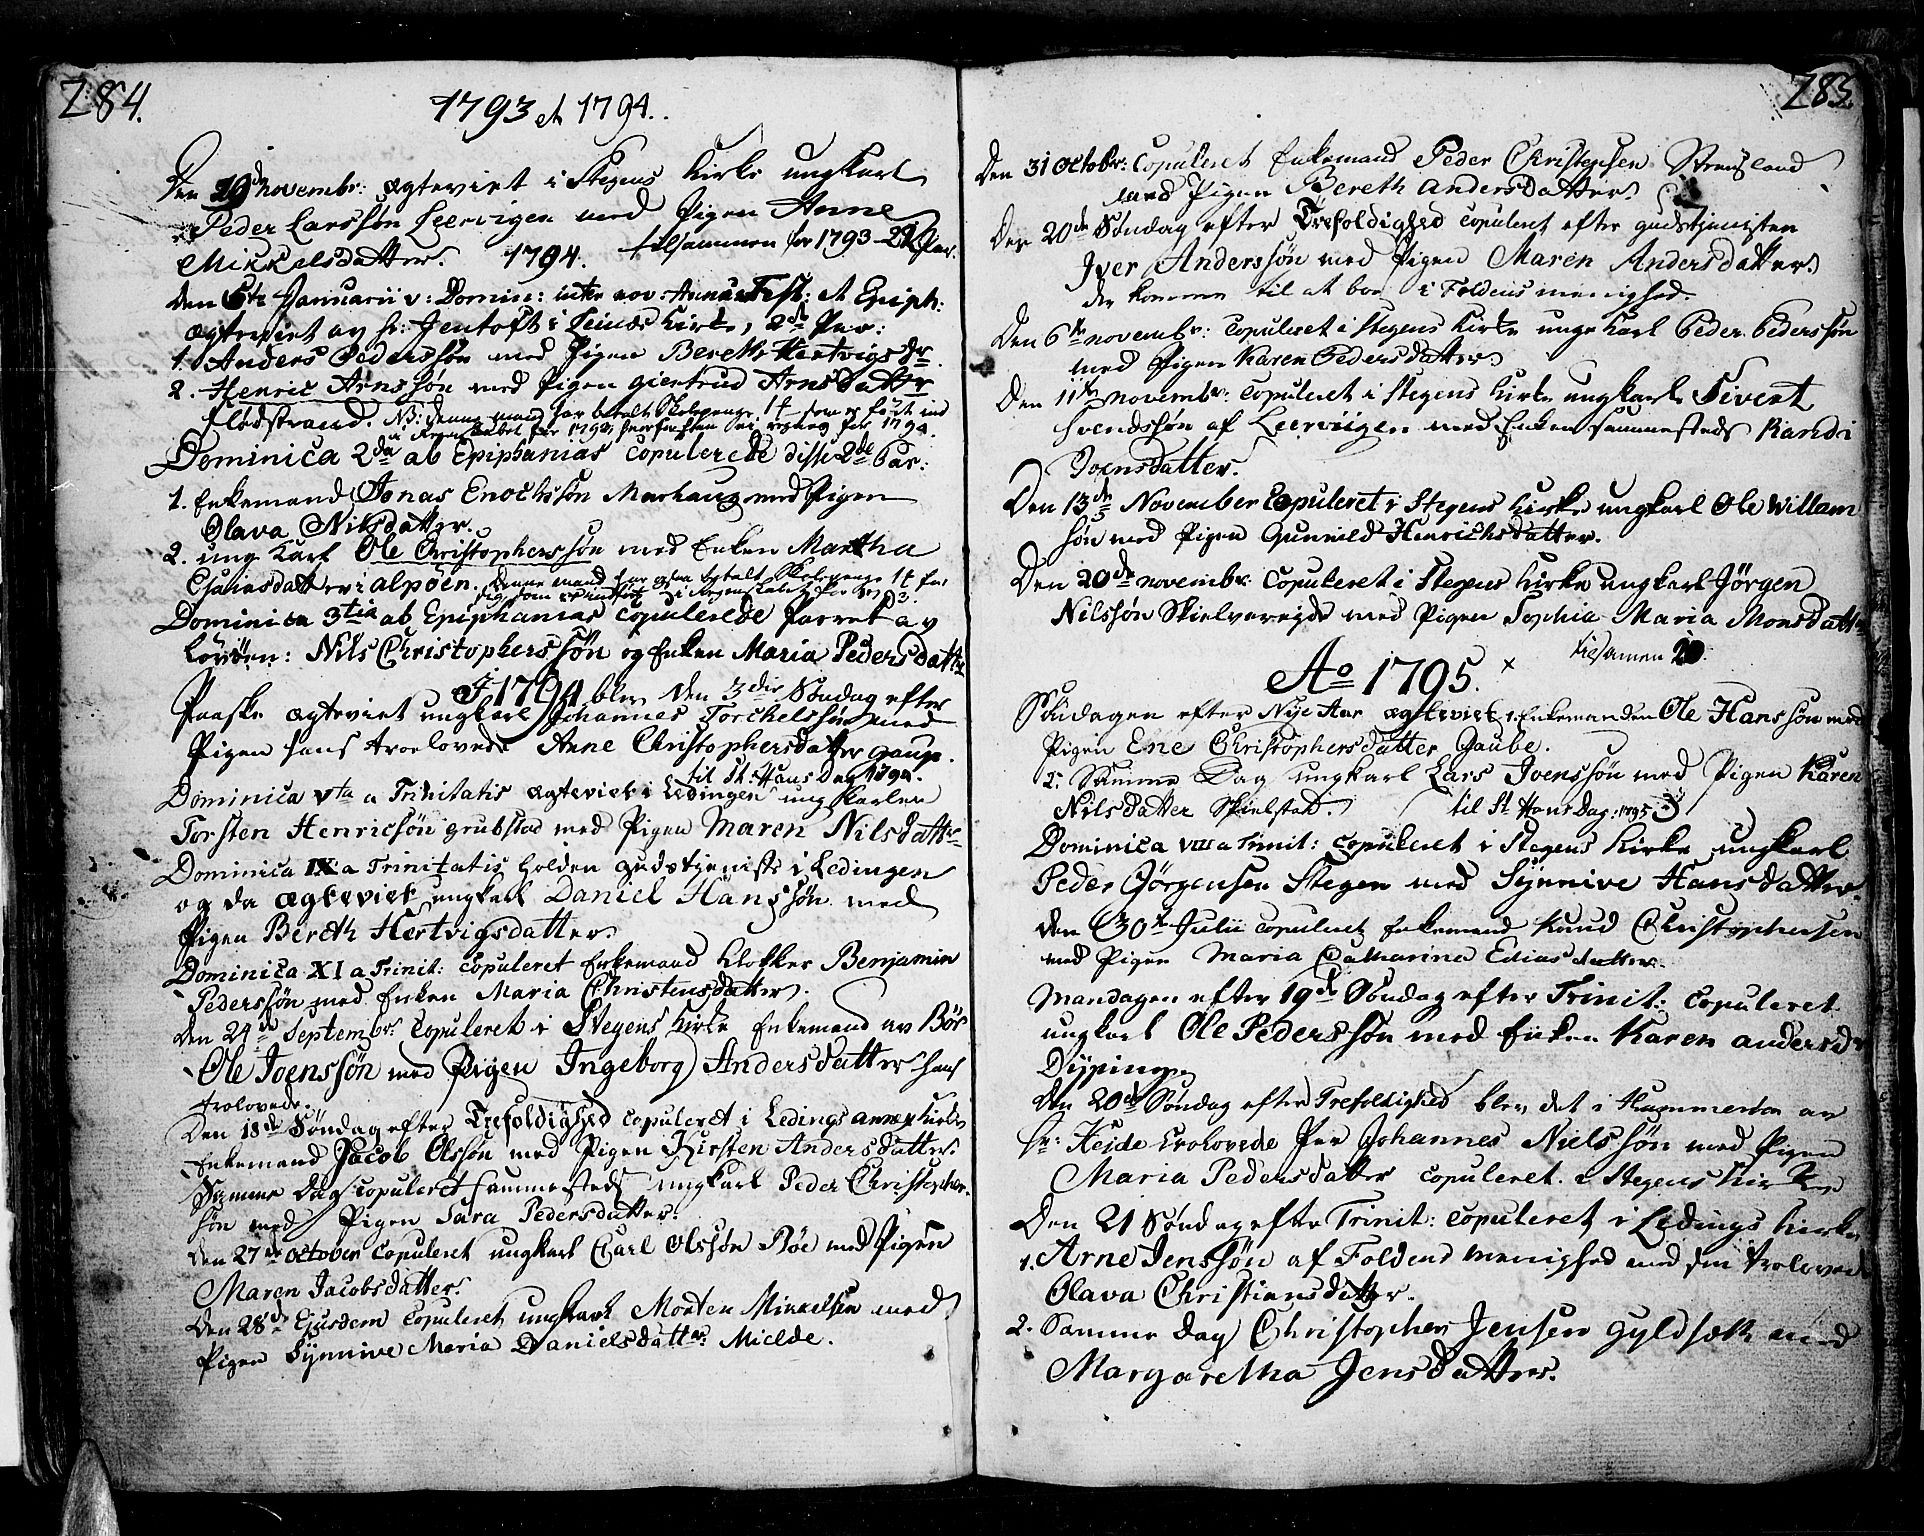 284.
1793 et 1794.
Den 29de novembr: ægteviet i Stegens Kirke ungkarl
Peder Larssøn Leervigen med Pigen Anne
Mikkelsdatter. 1794. tilsammen for 1793 - 22 Par.
Den 5te Januarii v: Domin: inter nov: Annum Fest: et Epiph:
ægteviet av Hr: Jentoft i Leines Kirke, 2de Par:
1. Anders Pederssøn med Pigen Bereth Hertvigsdr.
2. Henric Arnssøn med Pigen giertrud Arnsdatter
Flodstrand. NB: denne mand har betalt Skolepenge 1 som er ført ind
i Regnskabet for 1793, herfor i regning for 1794.
Dominica 2da ab Epiphanias Copulerede disse 2de Par:
1. Enkemand Jonas Enochssøn Marhaug med Pigen
Olava Nilsdatter.
2. ung Karl Ole Christopherssøn med Enken Martha
Eliasdatter: alpøen. denne mand har ogsaa betalt Skolepenge 1 for
sig, som er indført i Regenskabet for 1793.
Dominica 3tia ab Epiphanias Copulerede Parret av
Løvøen: Nils Christopherssøn og Enken Maria Pedersdatter
I 1794 blev den 3die Søndag efter
Paaske ægteviet ungkarl Johannes Torchelssøn med
Pigen hans troelovede Anne Christophersdatter gaup.
til St. Hans Dag 1794.
Dominica Vta a Trinitatis ægteviet i Ledingen ungkarlen
Torsten Henricsøn grubstad med Pigen Maren Nilsdatter
Dominica IX a Trinitatis holden gudstjeniste i Ledingen
og da ægteviet ungkarl Daniel Hanssøn med
Pigen Bereth Hertvigsdatter.
Dominica XI a Trinit: Copuleret Enkemand Klokker Benjamin
Pederssøn med Enken Maria Christensdatter.
Den 24de Septembr: Copuleret i Stegens Kirke Enkemand av Bøe
Ole Joenssøn med Pigen Ingeborg Andersdatter hans
trolovede.
Den 18de Søndag efter Trefoldighed Copuleret i Ledings annex Kirke
Enkemand Jacob Olssøn med Pigen Kirsten Andersdatter.
Samme Dag Copuleret sammesteds ungkarl Peder Christopher-
søn med Pigen Sara Pedersdatter.
Den 27de October Copuleret ungkarl Carl Olssøn Bøe med Pigen
Maren Jacobsdatter.
Den 28de Ejusdem Copuleret ungkarl Morten Mikkelsen med
Pigen Synnive Maria Danielsdatter: Mielde.
285.
Den 31 Octobr: Copuleret Enkemand Peder Christensen
med Pigen Bereth Andersdatter.
Den 20de Søndag efter Trefoldighed Copuleret efter gudstjenisten
Iver Anderssøn med Pigen Maren Andersdatter.
de komme til at boe i Foldens menighed.
Den 6te novembr: Copuleret i Stegens Kirke unge Karl Peder Pederssøn
med Pigen Karen Pedersdatter.
Den 11te novembr: Copuleret i Stegens Kirke ungkarl Sivert
Svendssøn af Leerviigen med Enken sammesteds Randi
Joensdatter.
Den 13de November Copuleret i Stegens Kirke ungkarl Ole Willam
søn med Pigen Gunnild Henrichsdatter.
Den 20de novembr: Copuleret i Stegens Kirke ungkarl Jørgen
Nilssøn Skielvareide med Pigen Sophia Maria Monsdatter
tilsamen 20.
Ao 1795.
Søndagen efter Nye Aar ægteviet 1. Enkemanden Ole Hanssøn med
Pigen Ene Christophersdatter Gaube.
2. Samme Dag ungkarl Lars Joenssøn med Pigen Karen
Nilsdatter Skielstad. til St. Hans Dag: 1795
Dominica VIII a Trinit: Copuleret i Stegens Kirke ungkarl
Peder Jørgensen Stegen med Synnive Hansdatter
den 30te Julii Copuleret Enkemand Knud Christophersen
med Pigen Maria Catharina Eliasdatter.
Mandagen efter 19de Søndag efter Trinit: Copuleret
ungkarl Ole Pederssøn med Enken Karen andersdr
Dyping.
Den 20de Søndag efter Trefoldighed blev det i Hammerøe av
Hr: Heide trolovede Par Johannes Nielssøn med Pigen
Maria Pedersdatter Copuleret i Stegens Kirke
Den 21 Søndag efter Trinit: Copuleret i Ledings Kirke
1. Arne Jenssøn af Foldens Menighed med sin trolovede
Olava Christiansdatter.
2. Samme dag Christopher Jensen med
Margaretha Jensdatter.